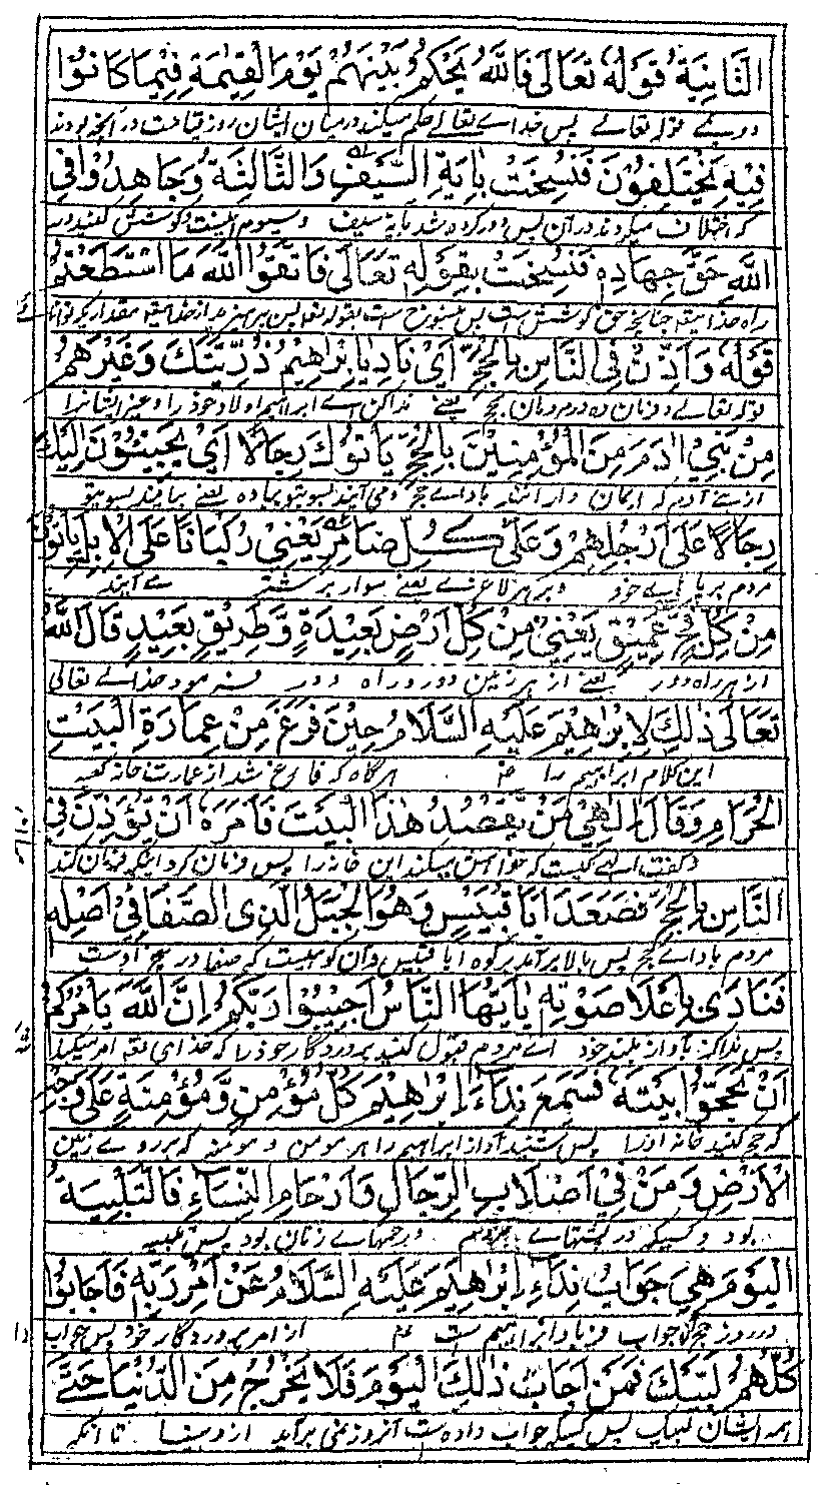 الثَّانِيَةُ قَوْلُهُ تَعَالَى فَاللَّهُ يَحْكُمُ بَيْنَهُمْ يَوْمَ الْقِيٰمَةِ فِيْمَا كَانُوْا
دوسے قوله تعالے پس خداے تعالے حکم میکند درمیان ایشان روز قیامت در آنچه بودند
فِيْهِ يَخْتَلِفُوْنَ فَنُسِخَتْ بِاٰيَةِ السَّيْفِ وَالثَّالِثَةُ وَجَاهِدُوْا فِي
که اختلاف میکردند در آن پس دور کرده شد بایة سیف وسیوم اینست وکوشش کنید در
اللَّهِ حَقَّ جِهَادِهٖ فَنُسِخَتْ بِقَوْلِهٖ تَعَالَى فَاتَّقُوا اللَّهَ مَا اسْتَطَعْتُمْ
راه خدا چنانچه حق کوشش است پس منسوخ است بقوله تعه پس بپرهیزید از خدا مقدار که توانا
قَوْلُهٗ وَاَذِّنْ فِي النَّاسِ بِالْحَجِّ اَيْ نَادِ يَا اِبْرَاهِيْمُ ذُرِّيَّتَكَ وَغَيْرَهُمْ
قوله تعالے و فرمان ده در مردمان بحج یعنے ندا کن اے ابراهیم اولاد خود را و غیر ایشانرا
مِنْ بَنِيْ اٰدَمَ مِنَ الْمُؤْمِنِيْنَ بِالْحَجِّ يَاْتُوْكَ رِجَالًا اَيْ يَجِيْئُوْنَ اِلَيْكَ
از بنے آدم که ایمان دارانند باداے حج می آیند بسویتو پیاده یعنے بیایند بسویتو
رِجَالًا عَلَى اَرْجُلِهِمْ وَعَلَى كُلِّ ضَامِرٍ يَعْنِيْ رُكْبَانًا عَلَى الْاِبِلِ يَاْتُوْنَ
مردم بر پایهاے خود و بر هر لاغرے یعنے سوار بر شتر مے آیند
مِنْ كُلِّ فَجٍّ عَمِيْقٍ يَعْنِيْ مِنْ كُلِّ اَرْضٍ بَعِيْدَةٍ وَّطَرِيْقٍ بَعِيْدٍ قَالَ اللَّهُ
از هر راه دور یعنے از هر زمین دور و راه دور فرمود خداے تعالی
تَعَالَى ذٰلِكَ لِاِبْرَاهِيْمَ عَلَيْهِ السَّلَامُ حِيْنَ فَرَغَ مِنْ عِمَارَةِ الْبَيْتِ
این کلام ابراهیم را هرگاه که فارغ شد از عمارت خانه کعبه
الْحَرَامِ وَقَالَ اِلٰهِيْ مَنْ يَّقْصُدُ هٰذَا الْبَيْتَ فَاَمَرَهٗ اَنْ يُّؤَذِّنَ فِي
وگفت الهے کیست که خواهش میکند این خانه را پس فرمان کرد اینکه فرمان کند
النَّاسِ بِالْحَجِّ فَصَعَدَ اَبَا قُبَيْسٍ وَهُوَ الْجَبَلُ الَّذِي الصَّفَا فِيْ اَصْلِهٖ
مردم باداے حج پس بالا برآمد بر کوه ابا قبیس وآن کوهیست که صفا در بیخ اوست
فَنَادٰى بِاَعْلَا صَوْتِهٖ يٰاَيُّهَا النَّاسُ اَجِيْبُوْا رَبَّكُمْ اِنَّ اللَّهَ يَاْمُرُكُمْ
پس ندا کرد بآواز بلند خود اے مردم قبول کنید پروردگار خود را که خداے تعه امر میکند
اَنْ تَحُجُّوْا بَيْتَهٗ فَسَمِعَ نِدَآءَ اِبْرَاهِيْمَ كُلُّ مُؤْمِنٍ وَّمُؤْمِنَةٍ عَلَى وَجْهِ
که حج کنید خانه اورا پس شنید آواز ابراهیم را هر مومن و مومنه که بر روے زمین
الْاَرْضِ وَمَنْ فِيْ اَصْلَابِ الرِّجَالِ وَاَرْحَامِ النِّسَآءِ فَالتَّلْبِيَةُ
بود و کسیکه در پشتهاے مردم و رحمهاے زنان بود پس تلبیه
الْيَوْمَ هِيَ جَوَابُ نِدَآءِ اِبْرَاهِيْمَ عَلَيْهِ السَّلَامُ عَنْ اَمْرِ رَبِّهٖ فَاَجَابُوْا
در روز حج جواب فریاد ابراهیم است از امر پروردگار خود پس جواب دا
كُلُّهُمْ لَبَّيْكَ فَمَنْ اَجَابَ ذٰلِكَ الْيَوْمَ فَلَا يَخْرُجُ مِنَ الدُّنْيَا حَتّٰى
همه ایشان لبیک پس کسیکه جواب داده است آنروز نمی برآید از دنیا تا آنکه